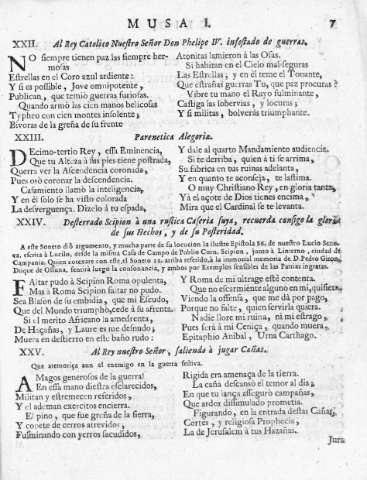 MUSA I. 7
XXII. Al Rey Catolico Nuestro Señor Don Phelipe IV. infestado de guerras.
NO siempre tienen paz las siempre her-
mosas
Estrellas en el Coro azul ardiente:
Y si es possible, Jove omnipotente,
Publican, que temiò guerras furiosas.
Quando armò las cien manos belicosas
Typheo con cien montes insolente,
Bivoras de la greña de su frente
Atonitas lamieron à las Osas.
Si habitan en el Cielo mal seguras
Las Estrellas; y en èl teme el Tonante,
Que estrañas guerras Tu, que paz procuras?
Vibre tu mano el Rayo fulminante,
Castiga las sobervias, y locuras;
Y si militas, bolveràs triumphante.
XXIII. Parenetica Alegoria.
DEcimo-tertio Rey, essa Eminencia,
Que tu Alteza à sus pies tiene postrada,
Querrà ver la Ascendencia coronada,
Pues oviò coronar la descendencia.
Casamiento llamò la inteligencia,
Y en èl solo le ha visto colorada
La desverguença. Dizelo à tu espada,
Y dale al quarto Mandamiento audiencia.
Si te derriba, quien à ti se arrima,
Su fabrica en tus ruinas adelanta,
Y en quanto te aconseja, te lastima.
O muy Christiano Rey, en gloria tanta,
Yà el açote de Dios tienes encima,
Mira que el Cardinal se te levanta.
XXIV. Desterrado Scipion à una rustica Caseria suya, recuerda consigo la gloria
de sus Hechos, y de su Posteridad.
A este Soneto diò argumento, y mucha parte de su locucion la ilustre Epistola 86. de nuestro Lucio Sene-
ca, escrita à Lucilo, desde la misma Casa de Campo de Publio Corn. Scipion, junto à Linterno, ciudad de
Campania. Quien la cotejare con este, el Soneto 12. arriba referido, à la immortal memoria de D. Pedro Giron,
Duque de Ossuna, sentirà luego la consonancia, y ambos por Exemplos sensibles de las Patrias ingratas.
FAltar pudo à Scipion Roma opulenta,
Mas à Roma Scipion faltar no pudo.
Sea Blason de su embidia, que mi Escudo,
Que del Mundo triumphò, cede à su afrenta.
Si el merito Africano la amedrenta,
De Haçañas, y Laure es me desnudo,
Muera en destierro en este baño rudo:
Y Roma de mi ultrage estè contenta.
Que no escarmiente alguno en mi, quisiera,
Viendo la offensa, que me dà por pago,
Porque no falte, quien servirla quiera.
Nadie llore mi ruina, ni mi estrago,
Pues serà à mi Ceniça, quando muera,
Epitaphio Anibal, Urna Carthago.
XXV. Al Rey nuestro Señor, saliendo à jugar Cañas.
Que atemoriça aun al enemigo en la guerra festiva.
AMagos generosos de la guerra
En essa mano diestra esclarecidos,
Militan y estremecen referidos,
Y el ademan exercitos encierra.
El pino, que fue greña de la sierra,
Y copete de cerros atrevidos,
Fulminando con yerros sacudidos,
Rigida era amenaça de la tierra.
La caña descansò el temor al dia;
En que tu lança asseguro campañas,
Que ardor dissimulado prometia.
Figurando, en la entrada destas Cañas,
Cortes, y religiosa Prophecia,
La de Jerusalem à tus Hazañas.
Jura